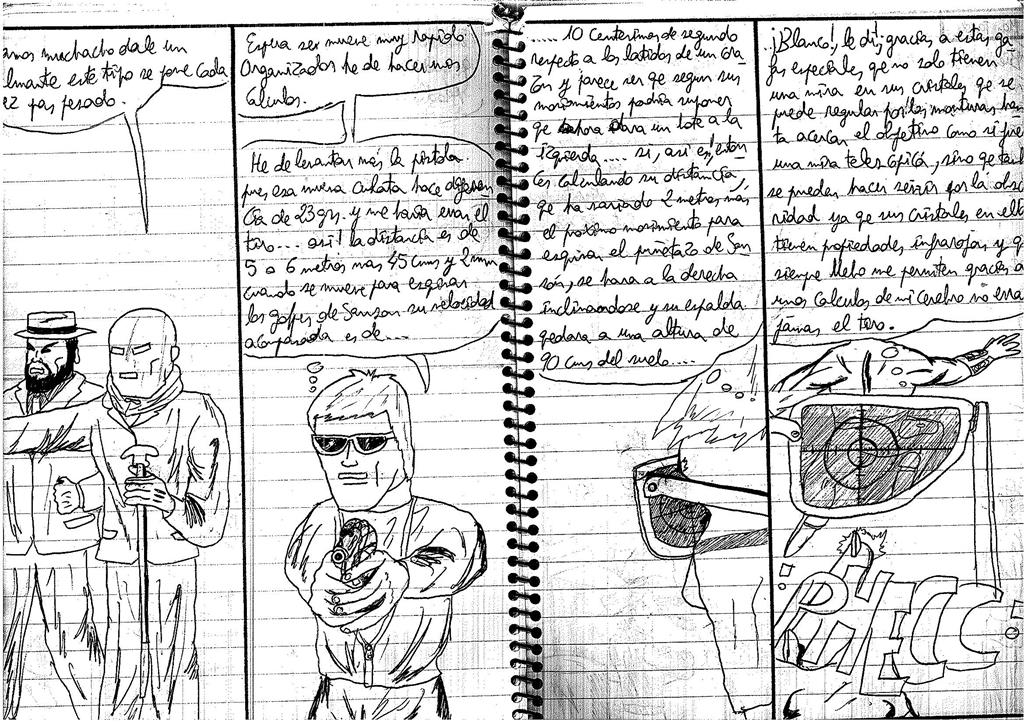 muchacho dale un
este tipo se pone cada
ez mas pesado.
Espera se mueve muy rapido
Organizador he de hacer mis
Calculos.
He de levantar más la pistola
pues esa nueva culata hace diferen
cia de 23 grs. y me haria errar el
tiro.... asi! la distancia es de
5 a 6 metros mas 45 cms y 2 mm
cuando se mueve para esquivar
los golpes de Sanson su velocidad
acompasada es de....
..... 10 centesimas de segundo
respecto a los latidos de un
y parece ser qe segun sus
movimientos podria suponer
qe ahora dara un bote a la
izquierda.... si, asi es! enton
ces calculando su distancia,
qe ha variado 2 metros más,
el proximo movimiento para
esquivar el puñetazo de San
són, se hara a la derecha
inclinandose y su espalda
qedara a una altura de
90 cms del suelo....
¡Blanco!, le di, gracias a estas ga
fas especiales, qe no solo tienen
una mira en sus cristales qe se
puede regular por las monturas has
ta acercar el objetivo como si fuera
una mira telescopica, sino qe tam
se pueden hacer servir por la obscu
ridad ya qe sus cristales en
tienen propiedades infrarojas y q
siempre llebo me permiten gracias a
unos calculos de mi cerebro no erra
jamas el tiro.